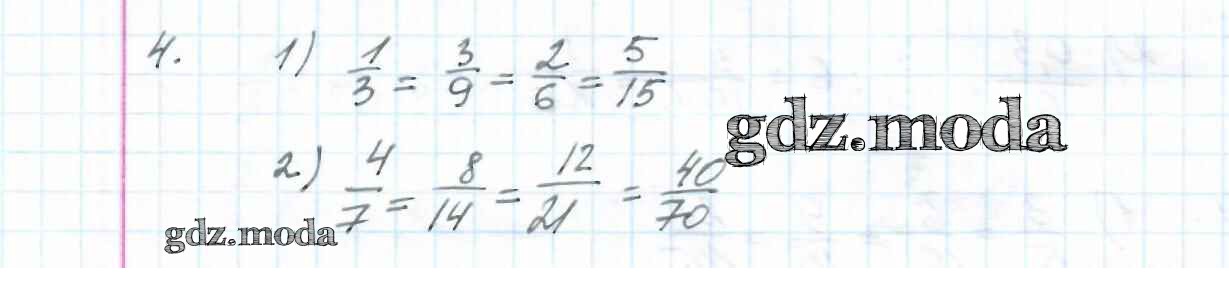 4. 1) 1/3 = 3/9 = 2/6 = 5/15
gdz.moda
2) 4/7 = 8/14 = 12/21 = 40/70
gdz.moda